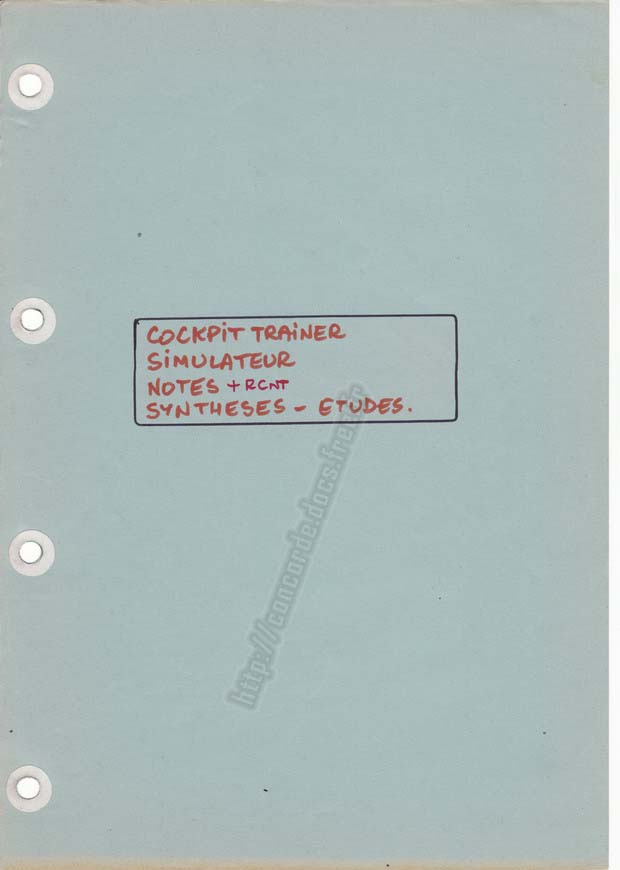 COCKPIT TRAINER
SIMULATEUR
NOTES + RCNT
SYNTHESES - ETUDES.
http://concorde.docs.free.fr